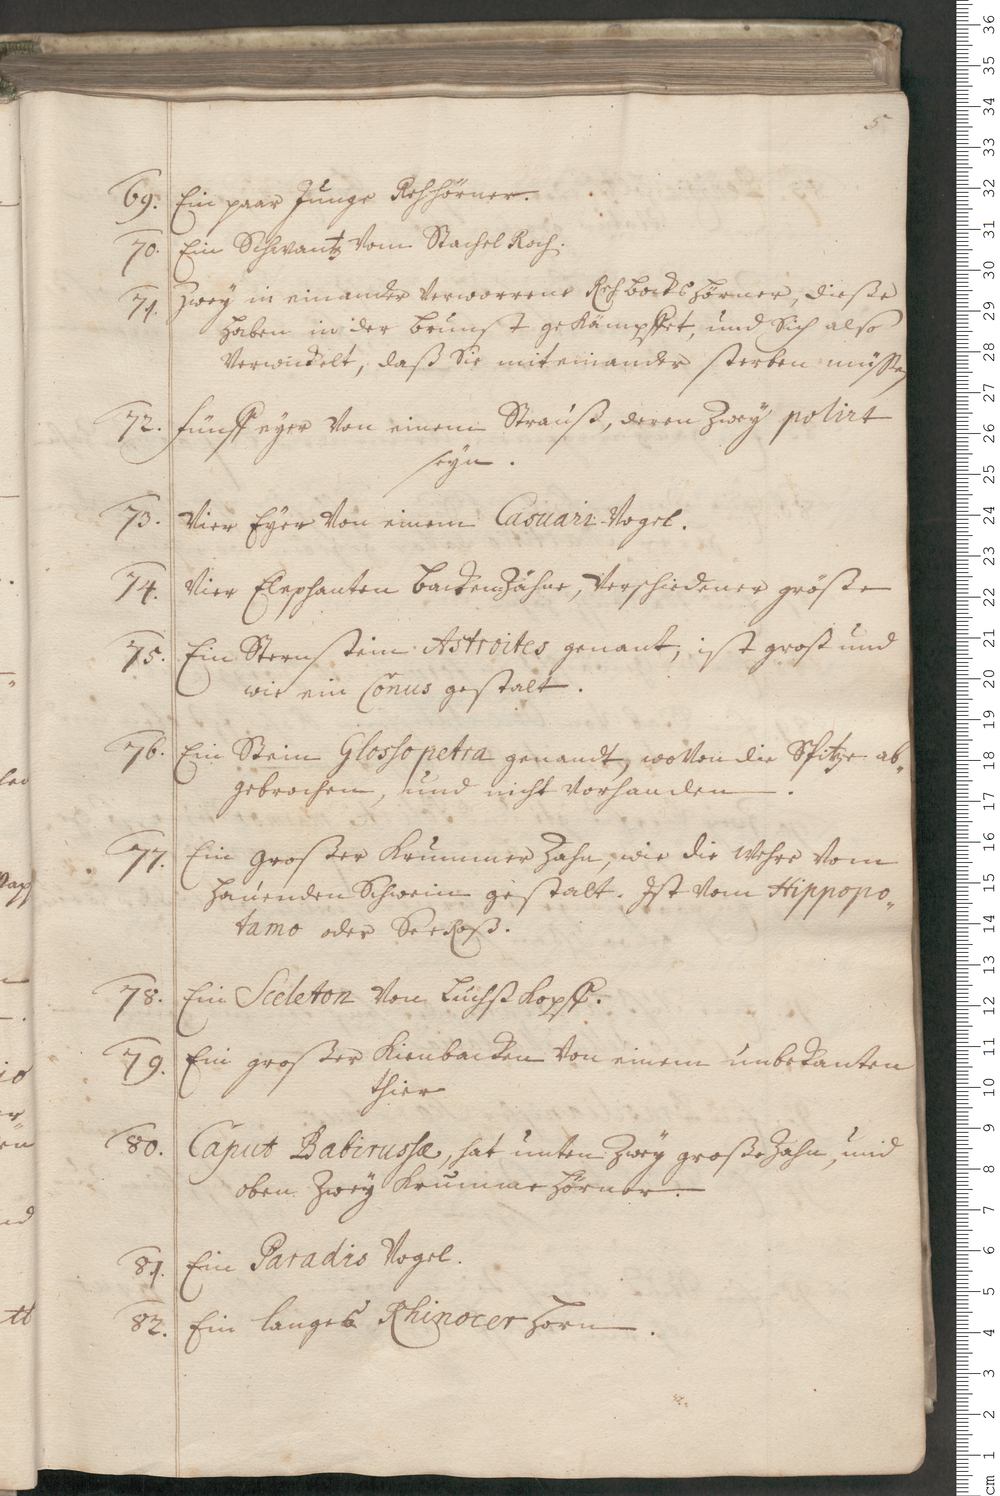 5
69. Ein paar Junge Rehhörner.
70. Ein Schwantz vom Stachel Roch.
71. Zwey in einander verworrene Rehbockshörner, dieße
haben in der brunst gekämpffet, und sich also
verwickelt, daß sie miteinander sterben müßen
72. fünff eyer von einem Strauß, deren Zwey polirt
seyn.
73. Vier Eyer von einem Casuari-Vogel.
74. Vier Elephanten backenzähne, verschiedener größe
75. Ein Sternstein Astroites genant, ist groß und
wie ein Conus gestalt.
76. Ein Stein Glossopetra genandt, wovon die Spitze ab-
gebrochen, und nicht vorhanden.
77. Ein großer krummer Zahn, wie die Wehre vom
hauenden Schwein gestalt. Ist vom Hippopo-
tamo oder SeeRoß.
78. Ein Sceleton von Luchßkopff.
79. Ein großer Kienbacken von einem unbekanten
thier
80. Caput Babirussæ, hat unten Zwey große Zähn, und
oben Zwey krumme hörner.
81. Ein Paradis Vogel.
82. Ein langes Rhinocer horn.
cm 1 2 3 4 5 6 7 8 9 10 11 12 13 14 15 16 17 18 19 20 21 22 23 24 25 26 27 28 29 30 31 32 33 34 35 36